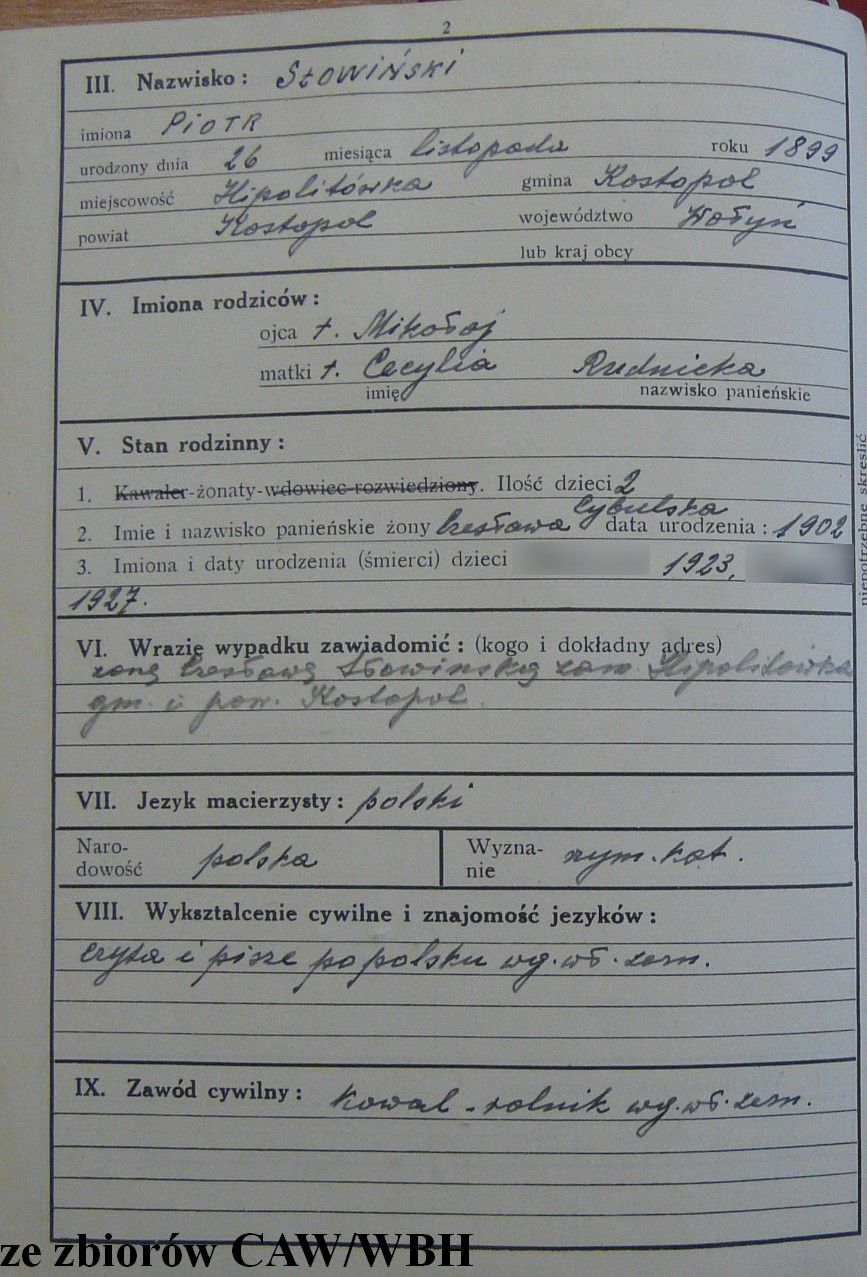 2
III. Nazwisko: Słowiński
imiona Piotr
urodzony dnia 26 miesiąca listopada roku 1899
miejscowość Hipolitówka gmina Kostopol
powiat Kostopol województwo Wołyń
lub kraj obcy
IV. Imiona rodziców:
ojca †. Mikołaj
matki †. Cecylia Rudnicka
imię nazwisko panieńskie
V. Stan rodzinny:
1. Kawaler-żonaty-wdowiec-rozwiedziony. Ilość dzieci 2
2. Imie i nazwisko panieńskie żony Czesława Cybulska data urodzenia: 1902
3. Imiona i daty urodzenia (śmierci) dzieci 1923,
1927.
niepotrzebne skreślić
VI. Wrazie wypadku zawiadomić: (kogo i dokładny adres)
żonę Czesławę Słowinską zam. Hipolitówka
gm. i pow. Kostopol.
VII. Jezyk macierzysty: polski
Naro-
dowość polska
Wyzna-
nie rzym. kat.
VIII. Wyksztalcenie cywilne i znajomość jezyków:
czyta i pisze po polsku wg. wł. zezn.
IX. Zawód cywilny: kowal - rolnik wg. wł. zezn.
ze zbiorów CAW/WBH